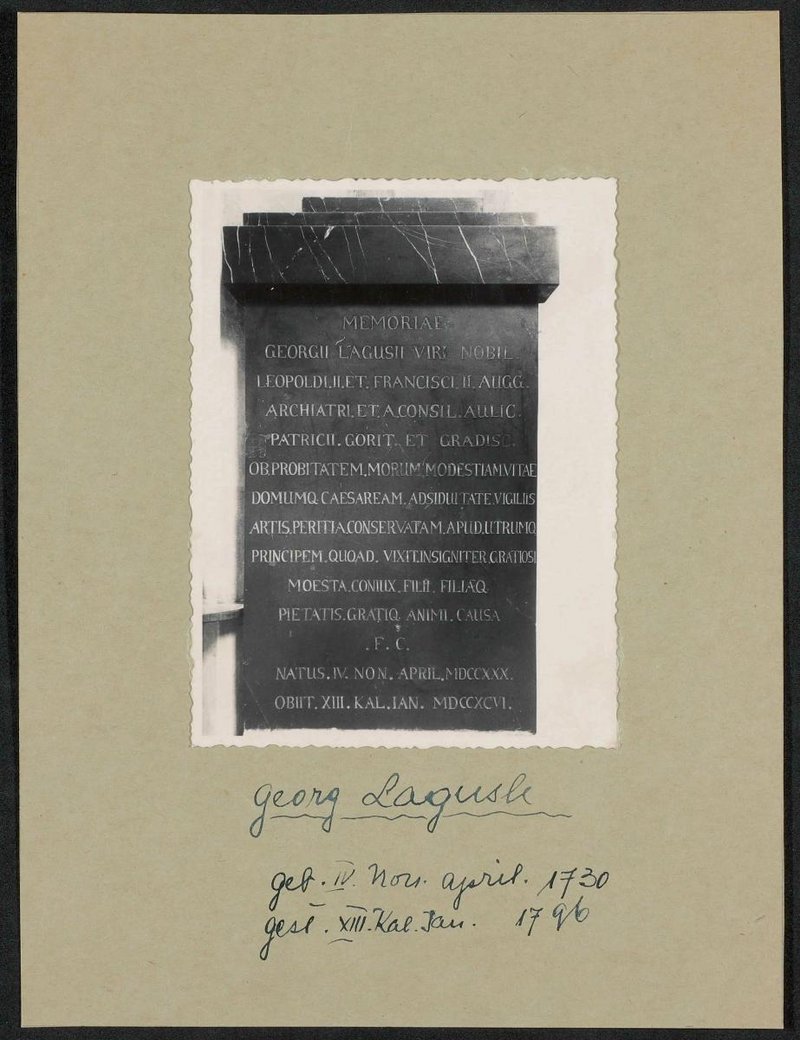 MEMORIAE
GEORGII LAGUSII VIRI NOBIL
LEOPOLDI.II.ET. FRANCISCI. II. AUGG.
ARCHIATRI. ET. A.CONSIL. AULIC.
PATRICII. GORIT. ET GRADISC.
OB.PROBITATEM.MORUM.MODESTIAM.VITAE
DOMUMQ. CAESAREAM. ADSIDUITATE VIGILIIS
ARTIS.PERITIA.CONSERVATAM.APUD.UTRUMQ
PRINCIPEM. QUOAD. VIXIT.INSIGNITER.GRATIOSI
MOESTA.CONIUX. FILII. FILIAQ.
PIETATIS.GRATIQ. ANIMI. CAUSA
.F. C.
NATUS. IV. NON. APRIL. MDCCXXX.
OBIIT. XIII. KAL. IAN. MDCCXCVI.
Georg Lagusli
geb. IV. Non. April. 1730
gest. XIII. Kal. Jan. 1796